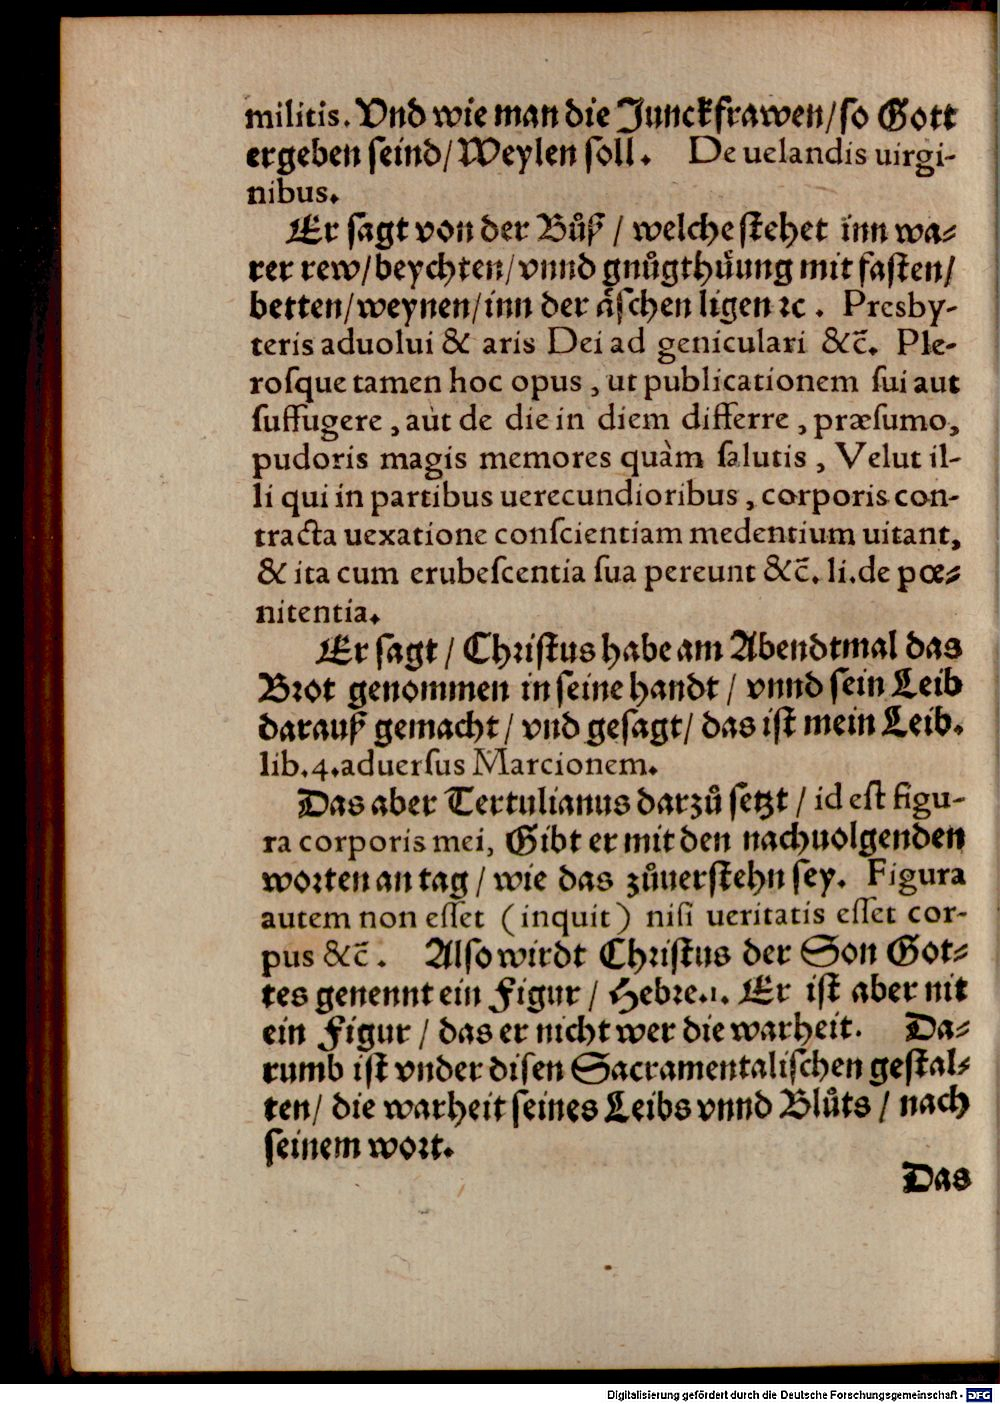 militis. Vnd wie man die Junckfrawen/ so Gott
ergeben seind/ Weylen soll. De uelandis uirgi-
nibus.
Er sagt von der Bůß / welche stehet inn wa-
rer rew/ beychten/ vnnd gnůgthůung mit fasten/
betten/ weynen/ inn der äschen ligen ꝛc. Presby-
teris aduolui & aris Dei ad geniculari &c̄. Ple-
roſque tamen hoc opus, ut publicationem ſui aut
ſuffugere, aut de die in diem differre, præſumo,
pudoris magis memores quàm ſalutis, Velut il-
li qui in partibus uerecundioribus, corporis con-
tracta uexatione conſcientiam medentium uitant,
& ita cum erubeſcentia ſua pereunt &c̄. li. de pœ-
nitentia.
Er sagt / Christus habe am Abendtmal das
Brot genommen in seine handt / vnnd sein Leib
darauß gemacht/ vnd gesagt/ das ist mein Leib.
lib. 4. aduerſus Marcionem.
Das aber Tertulianus darzů setzt / id eſt figu-
ra corporis mei, Gibt er mit den nachuolgenden
worten an tag / wie das zůuerstehn sey. Figura
autem non eſſet (inquit) niſi ueritatis eſſet cor-
pus &c̄. Also wirdt Christus der Son Got-
tes genennt ein Figur / Hebre. 1. Er ist aber nit
ein Figur / das er nicht wer die warheit. Da-
rumb ist vnder disen Sacramentalischen gestal-
ten/ die warheit seines Leibs vnnd Blůts / nach
seinem wort.
Das
Digitalisierung gefördert durch die Deutsche Forschungsgemeinschaft - DFG